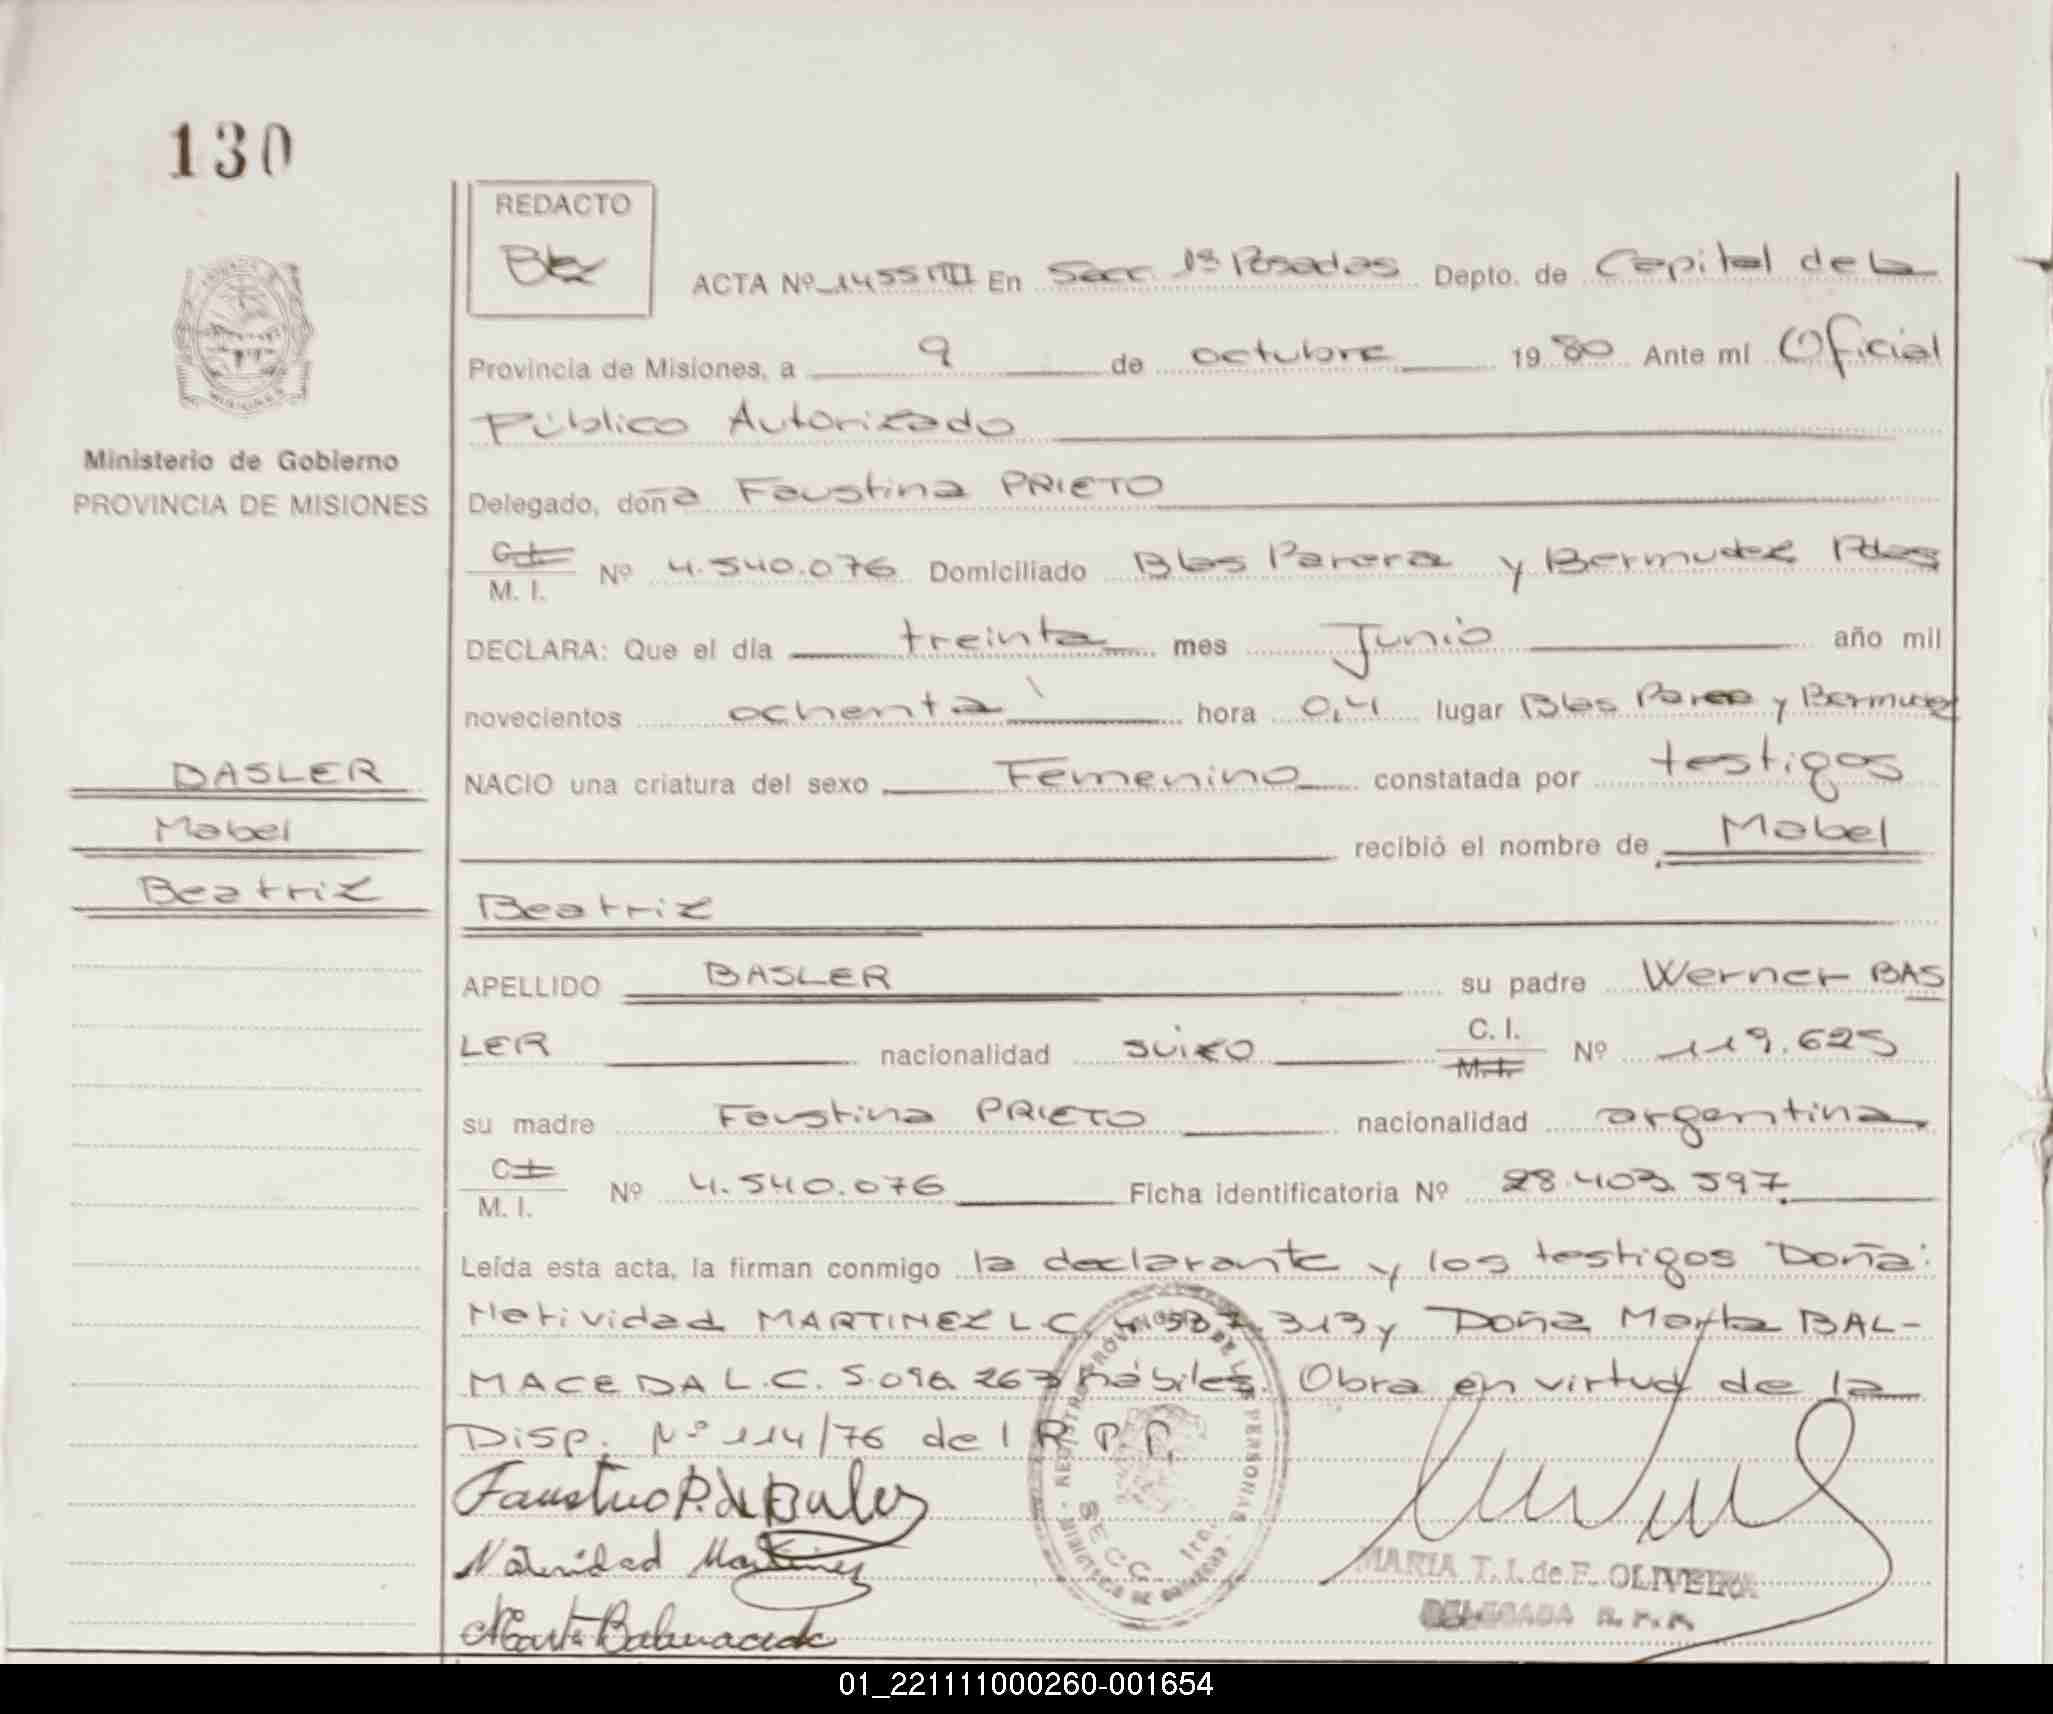 130
REDACTO
ACTA Nº 1455 VIII En Secc. 1ª Posadas Depto. de Capital de la
Provincia de Misiones, a 9 de octubre 19 80 Ante mí Oficial
Público Autorizado
Ministerio de Gobierno
PROVINCIA DE MISIONES
Delegado, doña Faustina PRIETO
C.I.
M. I. Nº 4.540.076 Domiciliado Blas Parera y Bermudez Pdas
DECLARA: Que el día treinta mes Junio año mil
novecientos ochenta hora 0,4 lugar Blas Parera y Bermudez
BASLER
Mabel
Beatriz
NACIO una criatura del sexo Femenino constatada por testigos
recibió el nombre de Mabel
Beatriz
APELLIDO BASLER su padre Werner BAS
LER nacionalidad suizo C. I. M.I. Nº 119.625
su madre Faustina PRIETO nacionalidad argentina
C.I.
M. I. Nº 4.540.076 Ficha identificatoria Nº 28.403.597
Leída esta acta, la firman conmigo la declarante y los testigos Doña:
Natividad MARTINEZ L.C. 313 y Doña Marta BAL-
MACEDA L.C. 5.096.263 hábiles. Obra en virtud de la
Disp. Nº 114/76 del R.P.P.
REGISTRO PROVINCIAL DE LAS PERSONAS
SECC. 1ra.
MINISTERIO DE GOBIERNO
Natividad Martinez
Marta Balmaceda
MARIA T. I. de F. OLIVEIRA
DELEGADA R. P. P.
01_221111000260-001654